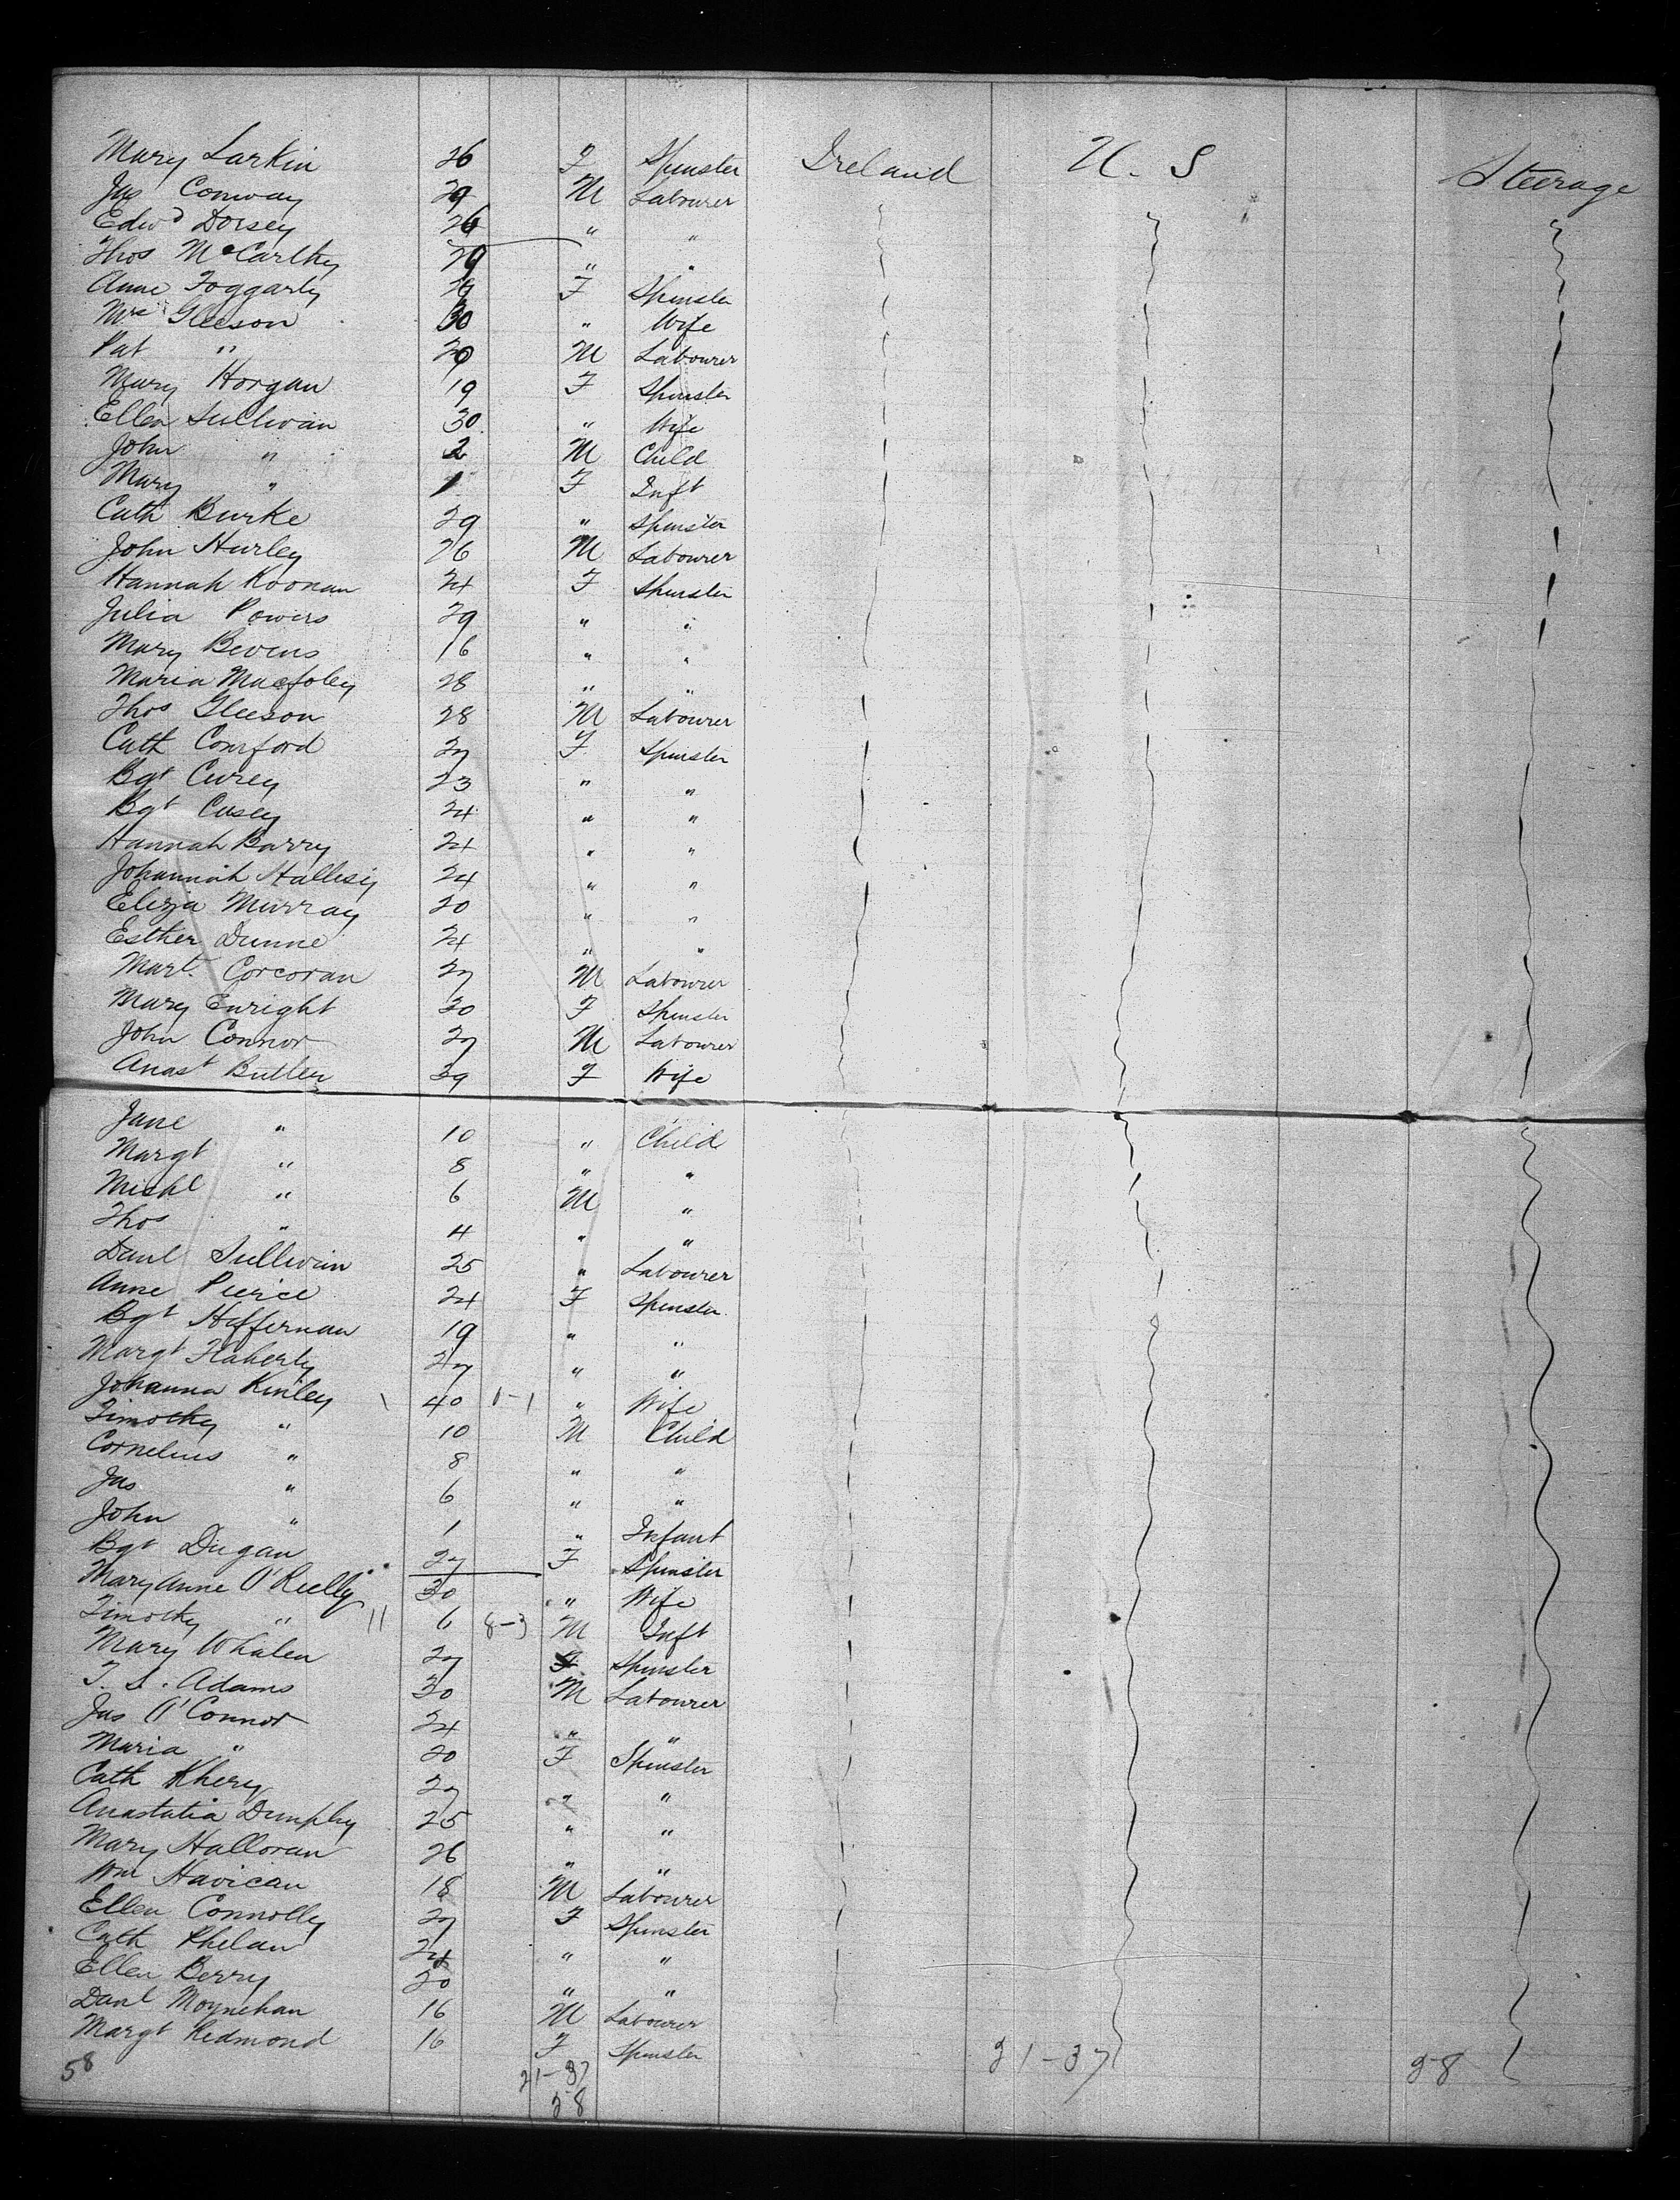 Mary Larkin 26 F Spinster Ireland U. S Steerage
Jas Conway 29 M Labourer
Edwd Dorsey 26 " "
Thos McCarthy 29 " "
Anne Foggarty F Spinster
Mrs Gleeson 30 " Wife
Pat " 29 M Labourer
Mary Horgan 19 F Spinster
Ellen Sullivan 30 " Wife
John " 2 M Child
Mary " 1 F Inft
Cath Burke 29 " Spinster
John Hurley 26 M Labourer
Hannah Noonan 24 F Spinster
Julia Powers 29 " "
Mary Bevens 16 " "
Maria Macfoley 28 " "
Thos Gleeson 28 M Labourer
Cath Comford 27 F Spinster
Bgt Curey 23 " "
Bgt Casey 24 " "
Hannah Barry 24 " "
Johannah Hallesy 24 " "
Eliza Murray 20 " "
Esther Dunne 24 " "
Mart. Corcoran 27 M Labourer
Mary Enright 30 F Spinster
John Connor 27 M Labourer
Anast Butler 39 F Wife
Jane " 10 " Child
Margt " 8 " "
Michl " 6 M "
Thos " 4 " "
Danl Sullivan 25 " Labourer
Anne Pierce 24 F Spinster
Bgt Heffernan 19 " "
Margt Flaherty 27 " "
Johanna Kinley 40 1-1 " Wife
Timothy " 10 M Child
Cornelius " 8 " "
Jas " 6 " "
John " 1 " Infant
Bgt Dugan 27 F Spinster
Mary Anne O'Reilly 30 " Wife
Timothy " 11 6 8-3 M Inft
Mary Whalen 27 F Spinster
T. S. Adams 30 M Labourer
Jas O'Connor 24 " "
Maria " 20 F Spinster
Cath Khery 27 " "
Anastatia Dunphy 25 " "
Mary Halloran 26 " "
Wm Havican 18 M Labourer
Ellen Connolly 27 F Spinster
Cath Phelan 24 " "
Ellen Berry 20 " "
Danl Moynehan 16 M Labourer
Margt Redmond 16 F Spinster
58 21-37 21-37 58
58